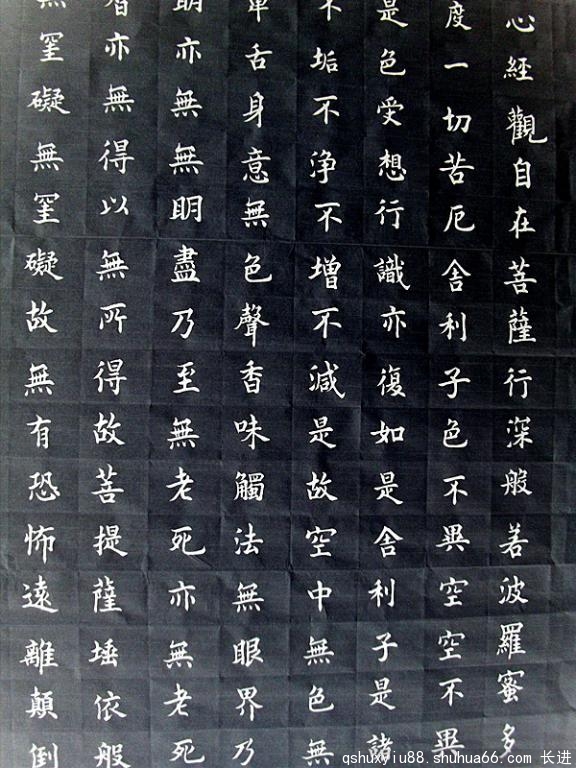 心經觀自在菩薩行深般若波羅蜜多
度一切苦厄舍利子色不異空空不異
是色受想行識亦復如是舍利子是諸
不垢不浄不增不減是故空中無色無
舌身意無色聲香味觸法無眼界乃
眀亦無無眀盡乃至無老死亦無老死
亦無得以無所得故菩提薩埵依般
無罣礙無罣礙故無有恐怖遠離顛倒
qshuxyiu88.shuhua66.com 长进